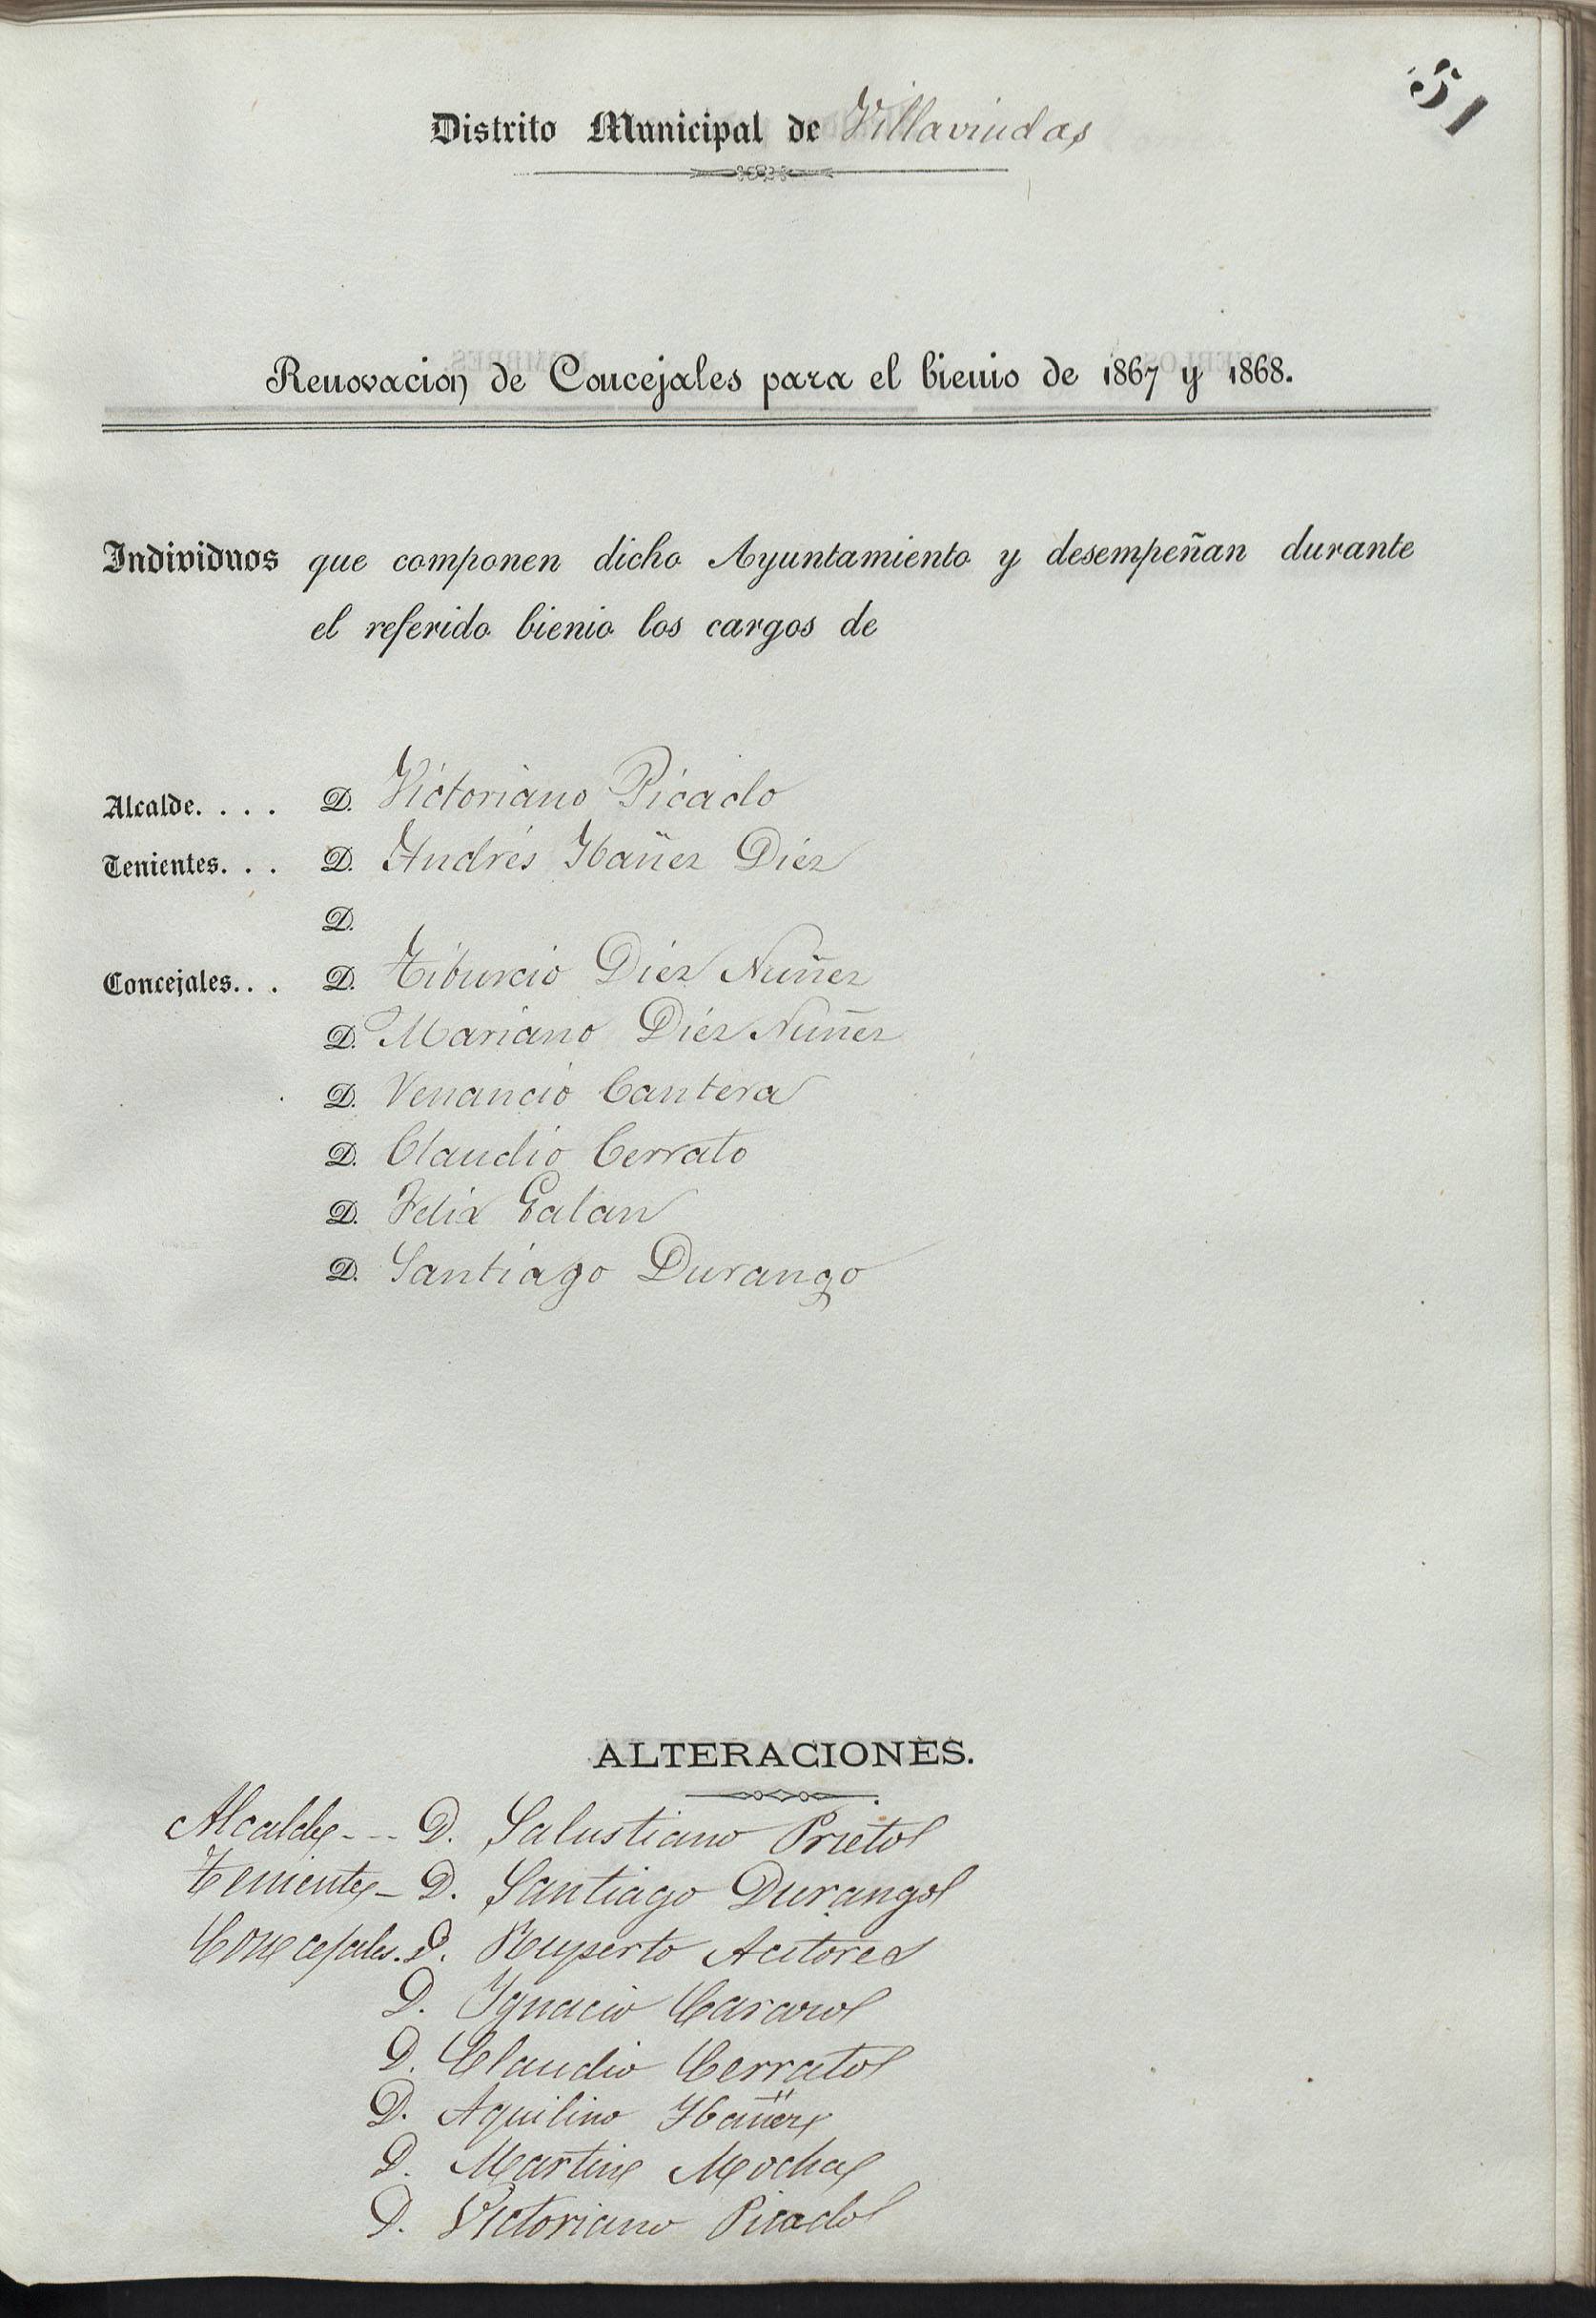 51
Distrito Municipal de Villaviudas
Renovacion de Concejales para el bienio de 1867 y 1868.
Individuos que componen dicho Ayuntamiento y desempeñan durante
el referido bienio los cargos de
Alcalde. . . . D. Victoriano Picado
Tenientes. . . D. Andrés Ybañez Diez
D.
Concejales. . . D. Tiburcio Diez Nuñez
D. Mariano Diez Nuñez
D. Venancio Cantera
D. Claudio Cerrato
D. Felix Galan
D. Santiago Durango
ALTERACIONES.
Alcalde - - - D. Salustiano Prieto
Teniente - D. Santiago Durango
Concejales. D. Ruperto Acitores
D. Ygnacio
D. Claudio Cerrato
D. Aquilino Ybañez
D. Martin Mocha
D. Victoriano Picado